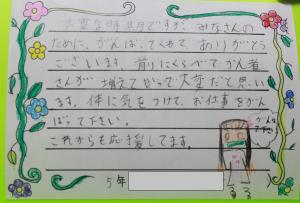 大変な時期ですが、みなさんの
ために、がんばってくれて、ありがとう
ございます。前にくらべてがん者
さんが増えてがって大変だと思い
ます。体に気をつけて、お仕事をがん
ばって下さい。
これからも応援してます。
5年